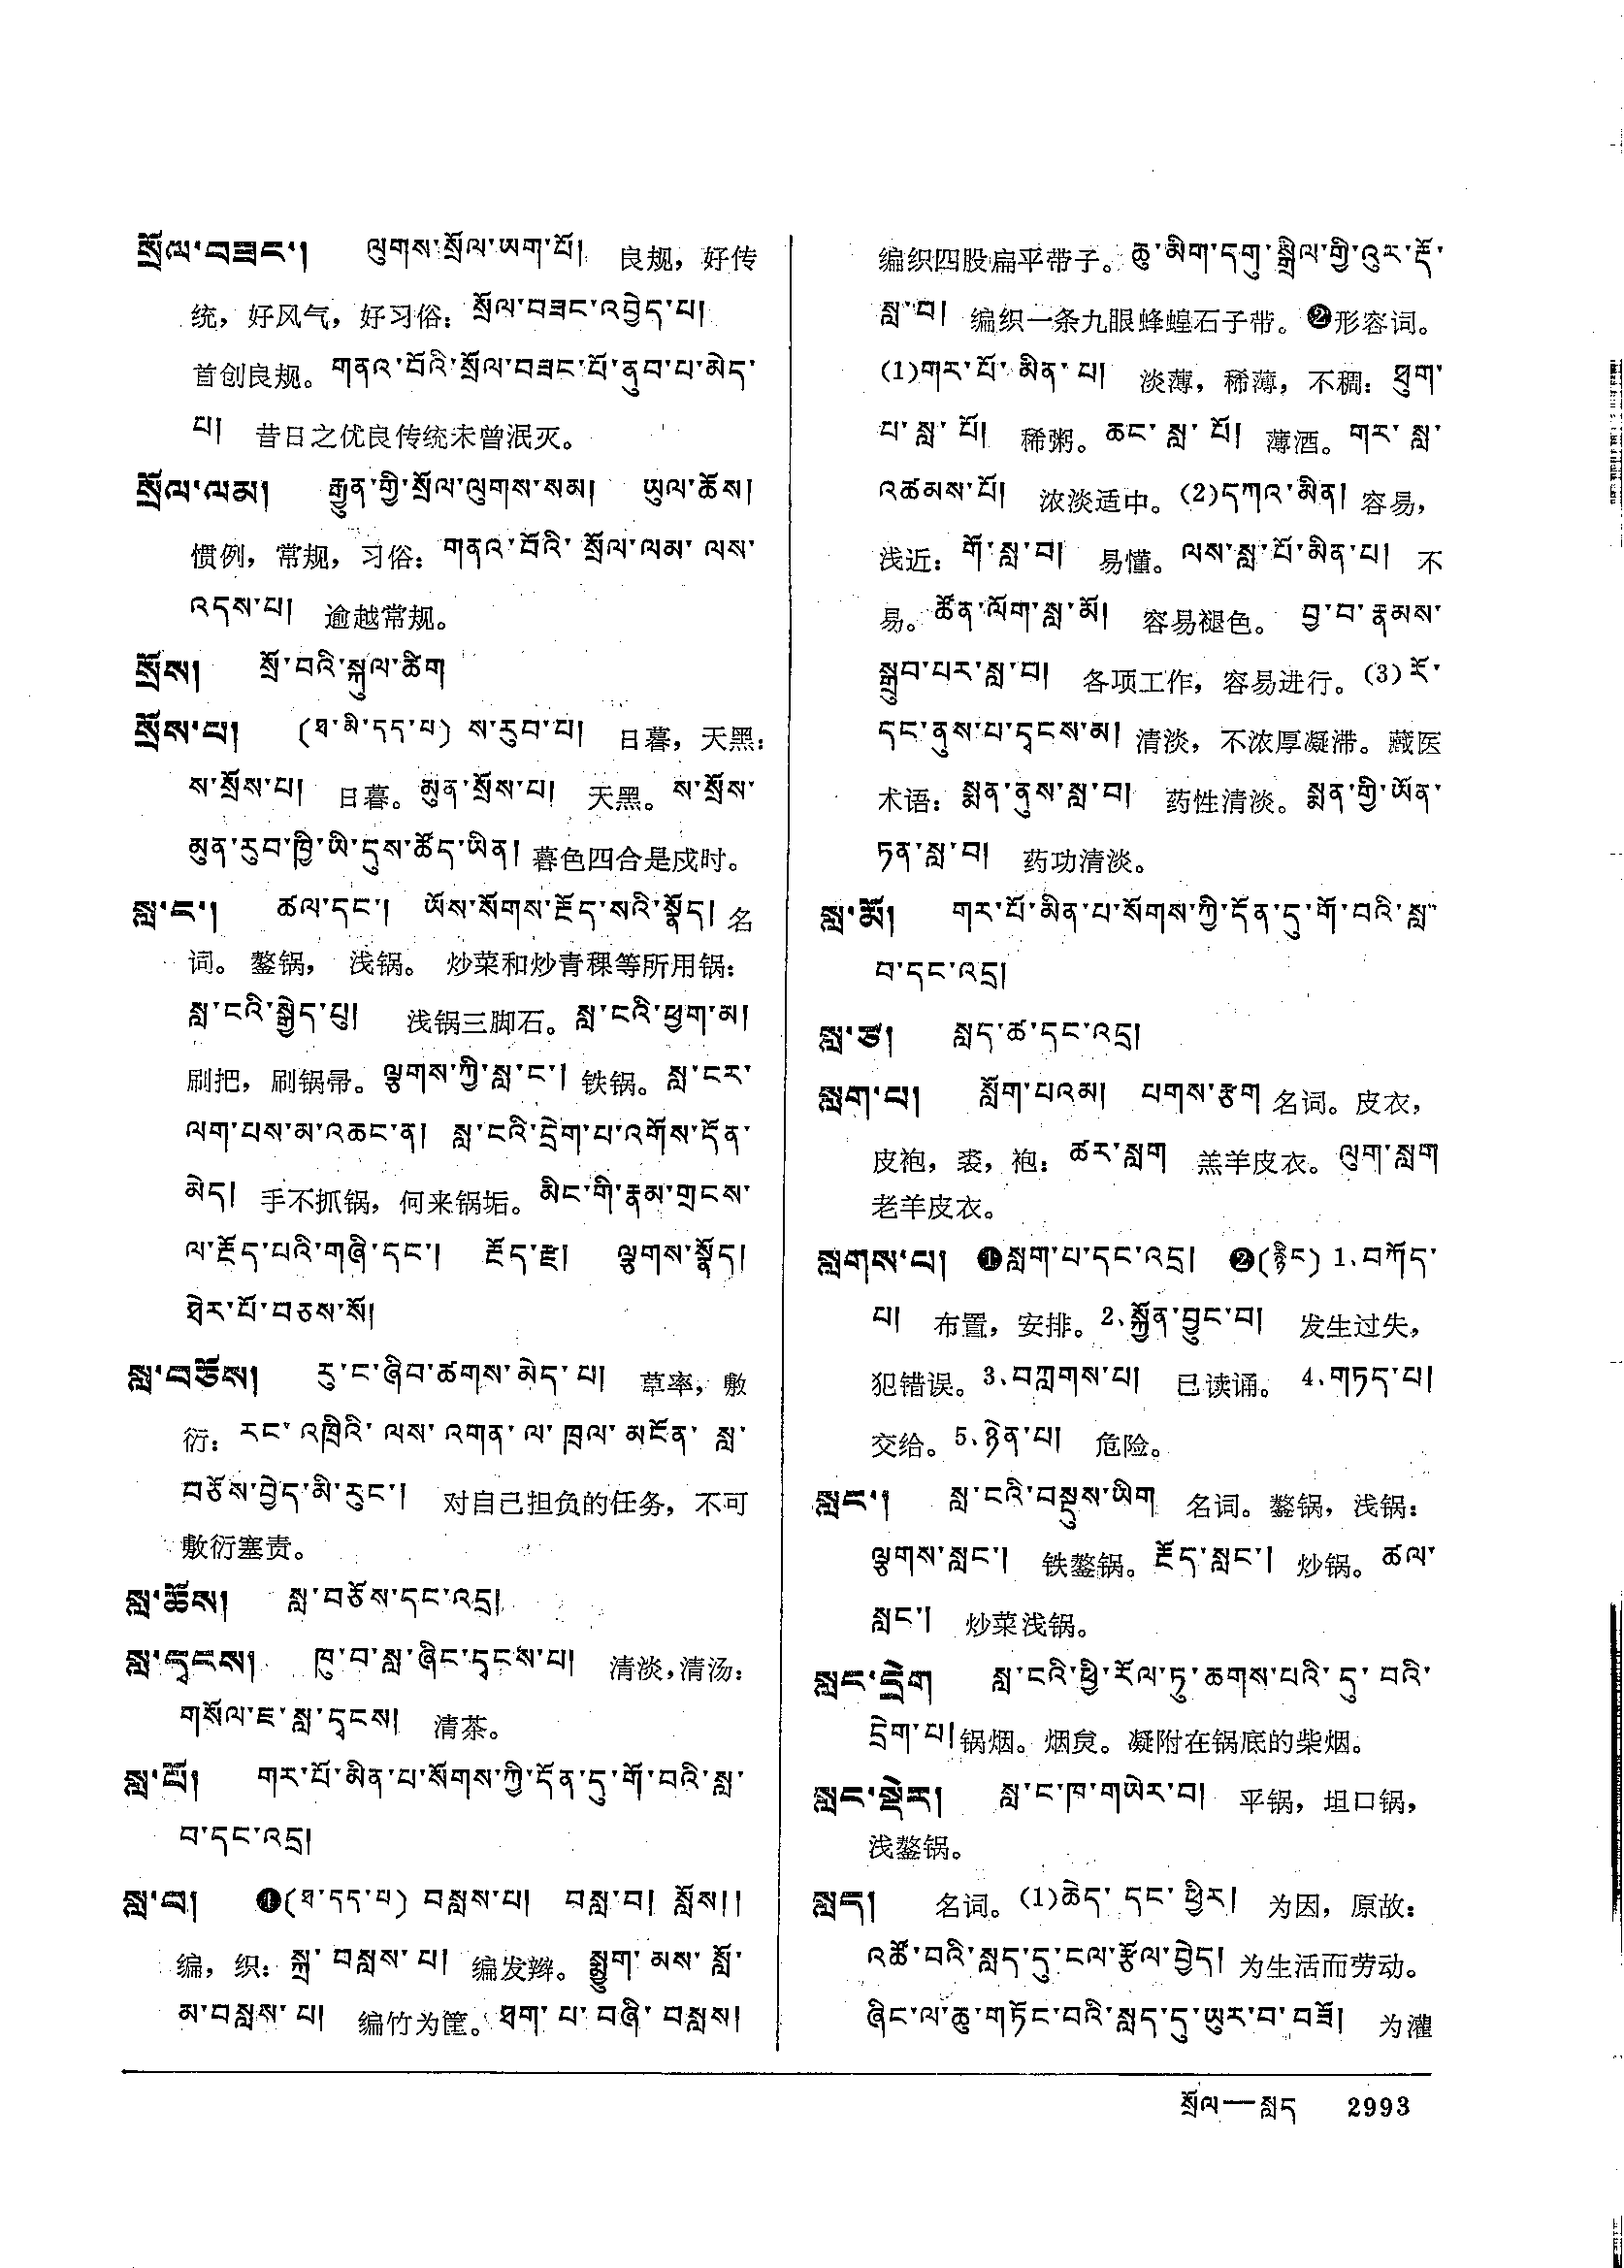 སྲོལ་བཟང་། ལུགས་སྲོལ་ཡག་པོ། 良规，好传
统，好风气，好习俗：སྲོལ་བཟང་འབྱེད་པ།
首创良规。གནའ་བོའི་སྲོལ་བཟང་པོ་ནུབ་པ་མེད་
པ། 昔日之优良传统未曾泯灭。
སྲོལ་ལམ། རྒྱུན་གྱི་སྲོལ་ལུགས་སམ། ཡུལ་ཆོས།
惯例，常规，习俗：གནའ་བོའི་སྲོལ་ལམ་ལས་
འདས་པ། 逾越常规。
སྲོས། སྲོ་བའི་སྐུལ་ཚིག
སྲོས་པ། (ཐ་མི་དད་པ) ས་རུབ་པ། 日暮，天黑：
ས་སྲོས་པ། 日暮。མུན་སྲོས་པ། 天黑。ས་སྲོས་
མུན་རུབ་ཁྱི་ཡི་དུས་ཚོད་ཡིན། 暮色四合是戍时。
སླ་ང་། ཚལ་དང་། ཡོས་སོགས་རྔོད་སའི་སྣོད། 名
词。鏊锅，浅锅。炒菜和炒青稞等所用锅：
སླ་ངའི་སྒྱེད་པུ། 浅锅三脚石。སླ་ངའི་ཕྱག་མ།
刷把，刷锅帚。ལྕགས་ཀྱི་སླ་ང་། 铁锅。སླ་ངར་
ལག་པས་མ་འཆང་ན། སླ་ངའི་དྲེག་པ་འགོས་དོན་
མེད། 手不抓锅，何来锅垢。མིང་གི་རྣམ་གྲངས་
ལ་རྔོད་པའི་གཞི་དང་། རྔོད་རྫ། ལྕགས་སྣོད།
ཐེར་པོ་བཅས་སོ།
སླ་བཅོས། རུ་ང་ཞིབ་ཚགས་མེད་པ། 草率，敷
衍：རང་འཁྲིའི་ལས་འགན་ལ་ཁྲལ་མངོན་སླ་
བཅོས་བྱེད་མི་རུང་། 对自己担负的任务，不可
敷衍塞责。
སླ་ཆོས། སླ་བཅོས་དང་འདྲ།
སླ་དྭངས། ཁུ་བ་སླ་ཞིང་དྭངས་པ། 清淡，清汤：
གསོལ་ཇ་སླ་དྭངས། 清茶。
སླ་པོ། གར་པོ་མིན་པ་སོགས་ཀྱི་དོན་དུ་གོ་བའི་སླ་
བ་དང་འདྲ།
སླ་བ། ❶(ཐ་དད་པ) བསླས་པ། བསླ་བ། སློས།།
编，织：སྐྲ་བསླས་པ། 编发辫。སྨྱུག་མས་སློ་
མ་བསླས་པ། 编竹为筐。ཐག་པ་བཞི་བསླས།
编织四股扁平带子。ཆུ་མིག་དགུ་སྒྲིལ་གྱི་འུར་རྡོ་
སླ་བ། 编织一条九眼蜂蝗石子带。❷形容词。
(1)གར་པོ་མིན་པ། 淡薄，稀薄，不稠：ཐུག་
པ་སླ་པོ། 稀粥。ཆང་སླ་པོ། 薄酒。གར་སླ་
འཚམས་པོ། 浓淡适中。(2)དཀའ་མིན། 容易，
浅近：གོ་སླ་བ། 易懂。ལས་སླ་པོ་མིན་པ། 不
易。ཚོན་ལོག་སླ་མོ། 容易褪色。བྱ་བ་རྣམས་
སྒྲུབ་པར་སླ་བ། 各项工作，容易进行。(3)རོ་
དང་ནུས་པ་དྭངས་མ། 清淡，不浓厚凝滞。藏医
术语：སྨན་ནུས་སླ་བ། 药性清淡。སྨན་གྱི་ཡོན་
ཏན་སླ་བ། 药功清淡。
སླ་མོ། གར་པོ་མིན་པ་སོགས་ཀྱི་དོན་དུ་གོ་བའི་སླ་
བ་དང་འདྲ།
སླ་ཙ། སླད་ཚ་དང་འདྲ།
སླག་པ། སློག་པའམ། པགས་རྩག 名词。皮衣，
皮袍，裘，袍：ཚར་སླག 羔羊皮衣。ལུག་སླག
老羊皮衣。
སླགས་པ། ❶སླག་པ་དང་འདྲ། ❷(རྙིང) 1.བཀོད་
པ། 布置，安排。2.སྐྱོན་བྱུང་བ། 发生过失，
犯错误。3.བཀླགས་པ། 已读诵。 4.གཏད་པ།
交给。5.ཉེན་པ། 危险。
སླང་། སླ་ངའི་བསྡུས་ཡིག 名词。鏊锅，浅锅：
ལྕགས་སླང་། 铁鏊锅。རྔོད་སླང་། 炒锅。ཚལ་
སླང་། 炒菜浅锅。
སླང་དྲེག སླ་ངའི་ཕྱི་རོལ་ཏུ་ཆགས་པའི་དུ་བའི་
དྲེག་པ། 锅烟。烟炱。凝附在锅底的柴烟。
སླང་སྡེར། སླ་ང་ཁ་གཡེར་བ། 平锅，坦口锅，
浅鏊锅。
སླད། 名词。(1)ཆེད་དང་ཕྱིར། 为因，原故：
འཚོ་བའི་སླད་དུ་ངལ་རྩོལ་བྱེད། 为生活而劳动。
ཞིང་ལ་ཆུ་གཏོང་བའི་སླད་དུ་ཡུར་བ་བཟོ། 为灌
སྲོལ—སླད 2993